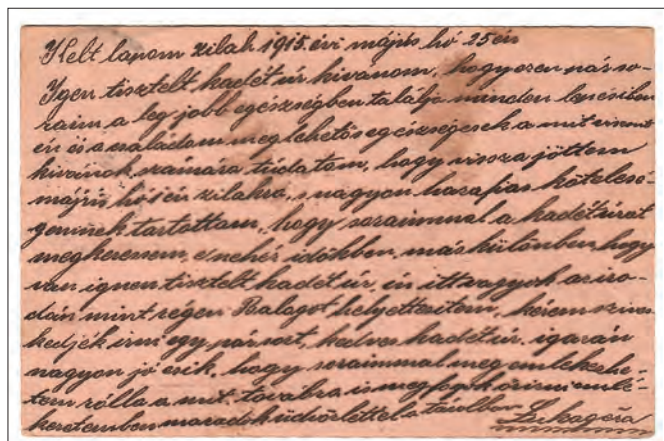 Kelt lapom zilah 1915. évi május hó 25 én
Igen tisztelt kadét úr kivanom, hogy ezen pár so-
raim a leg jobb egészségben találja minden lépésiben
én és a családom meglehetös egeiszségesek a mit viszont
kivánok számára tudatom, hogy vissza jöttem
május hó 1 én zilahra, s nagyon hazafias kötelesé-
gemnek tartottam, hogy soraimmal a kadét urat
megkeresem, e nehéz idökben, más különben hogy
van igen tisztelt kadét úr, én itt vagyok az iro-
dán mint régen Balagot helyettesitem, kérem szives
kedjék irni egy pár sort, kedves kadét úr. igazán
nagyon jó esik, hogy soraimmal meg emlékezhe-
tem rólla a mit továbra is meg fogok örizni emlé-
keretemben maradok üdvözlettel a távolban